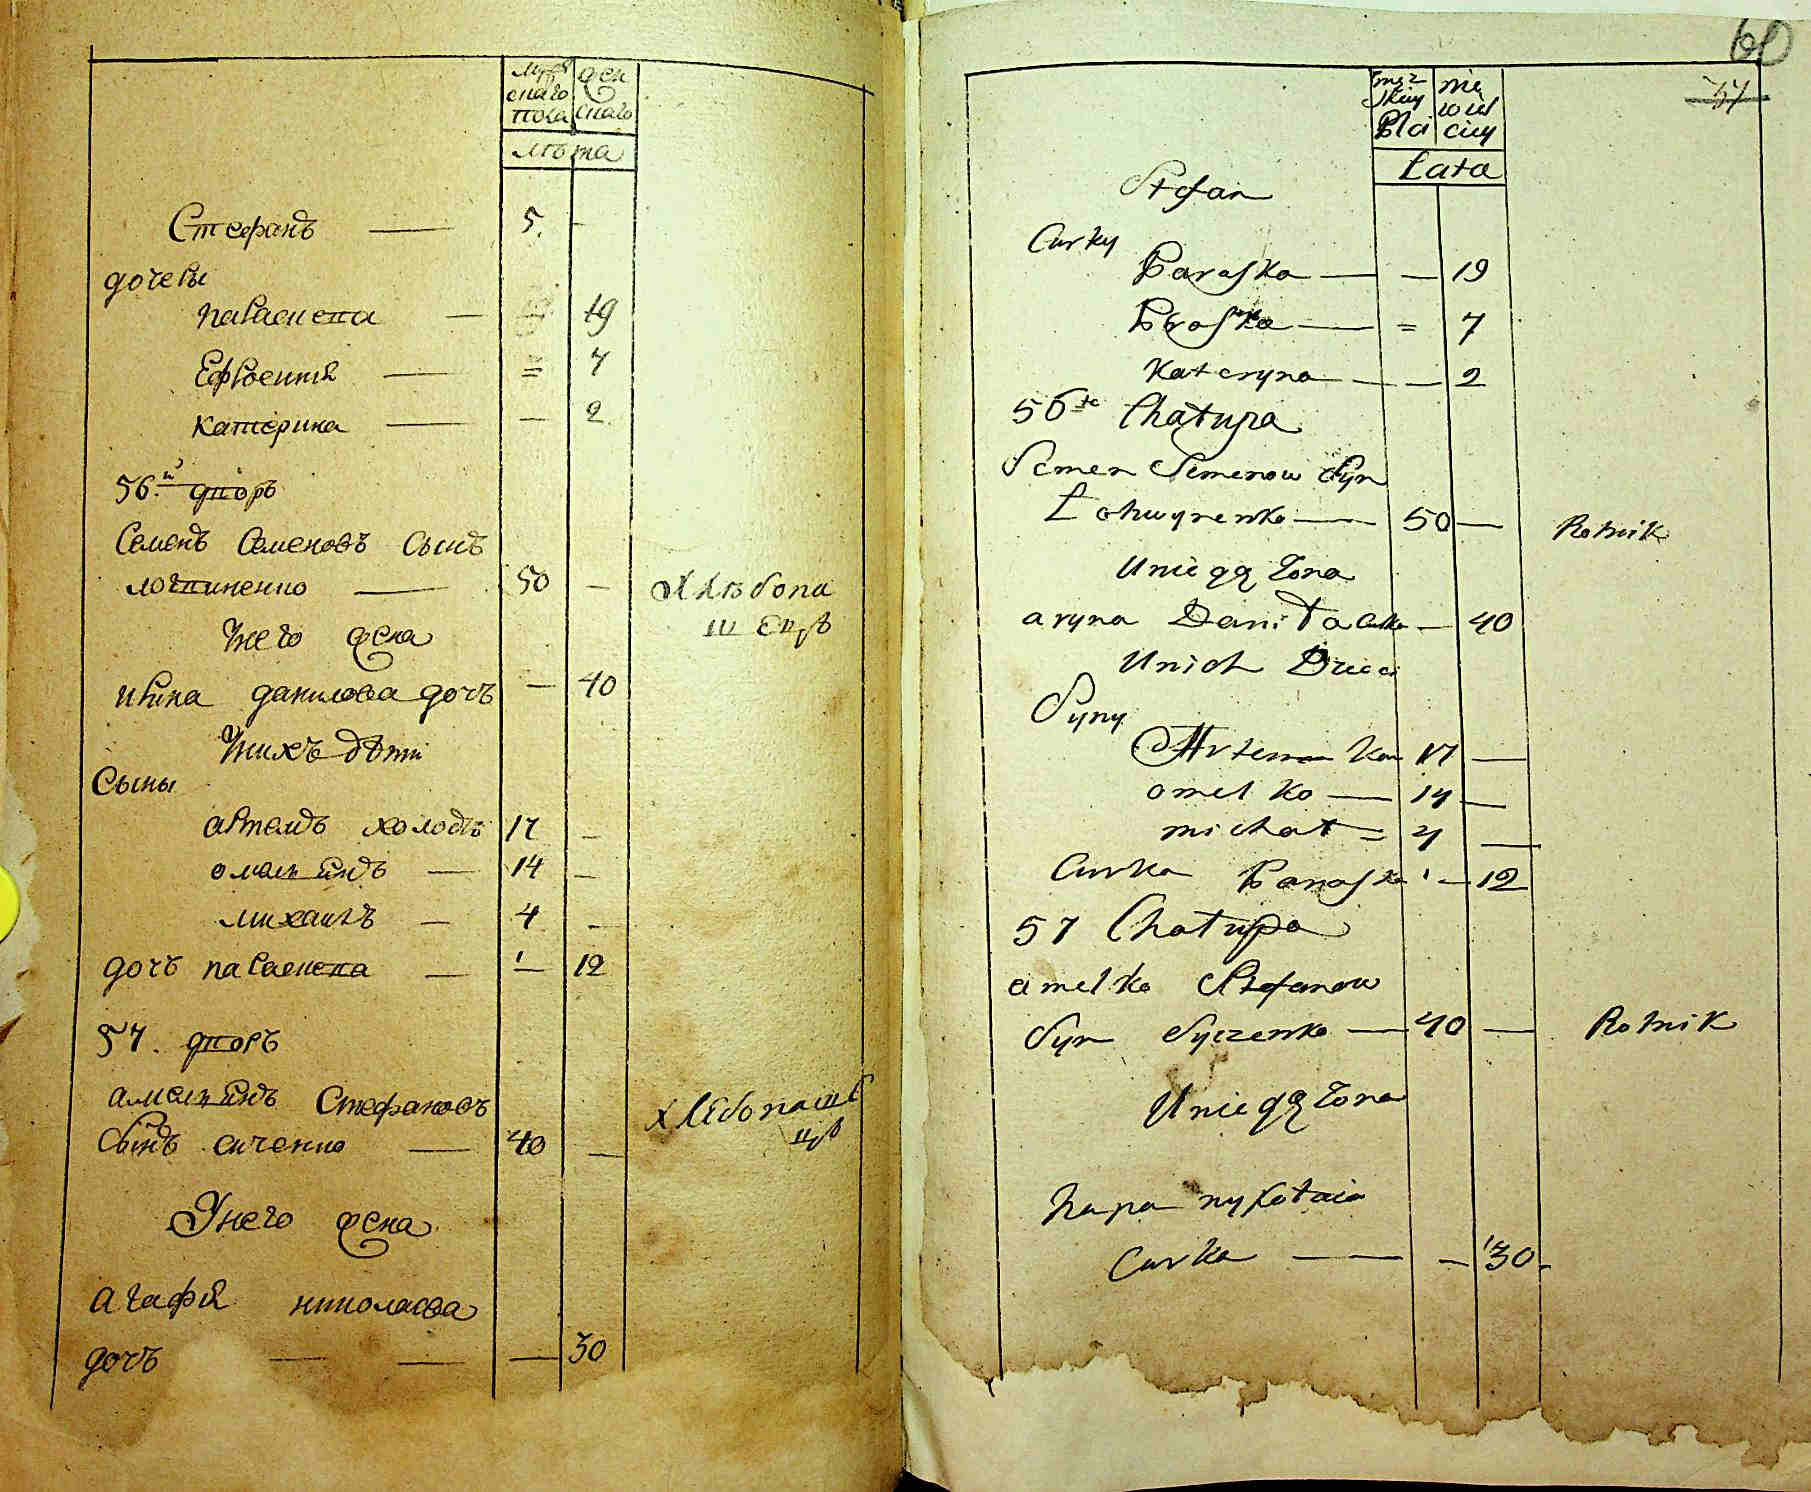 мужескаго пола женскаго
лѣта
Стефанъ — 5. -
дочеры
параскева — 19
Ефросинія — = 7
катерина — — 2
56.й дворъ
Семенъ Семеновъ сынъ
логвиненко — 50 — Хлѣбопа
шецъ
У него жена
ирина данилова дочъ — 40
У нихъ дѣти
Сыны
артемъ холостъ 17 —
омельянъ — 14 —
михаилъ — 4 -
дочъ параскева — — 12
57. дворъ
амельянъ Стефановъ
сынъ сиченко — 40 — хлебопаше
цъ
У него жена
агафія николаева
дочъ — — — 30
60
37
męzskiey Płci niewiesciey
Łata
Stefan
Curky
Paraska — — 19
Proska — = 7
Kateryna — — 2
56te Chałupa
Semen Semenow Syn
Łohwynenko — 50 — Rolnik
U niego Żona
aryna Daniła Curka — 40
U nich Dzieci
Syny
Artem Kaw 17 —
omelko — 14 —
michał = 4 —
Curka Paraska — 12
57 Chałupa
amelko Stefanow
Syn Syczenko — 40 — Rolnik
U niego Żona
hapa nykołaia
Curka — — 30